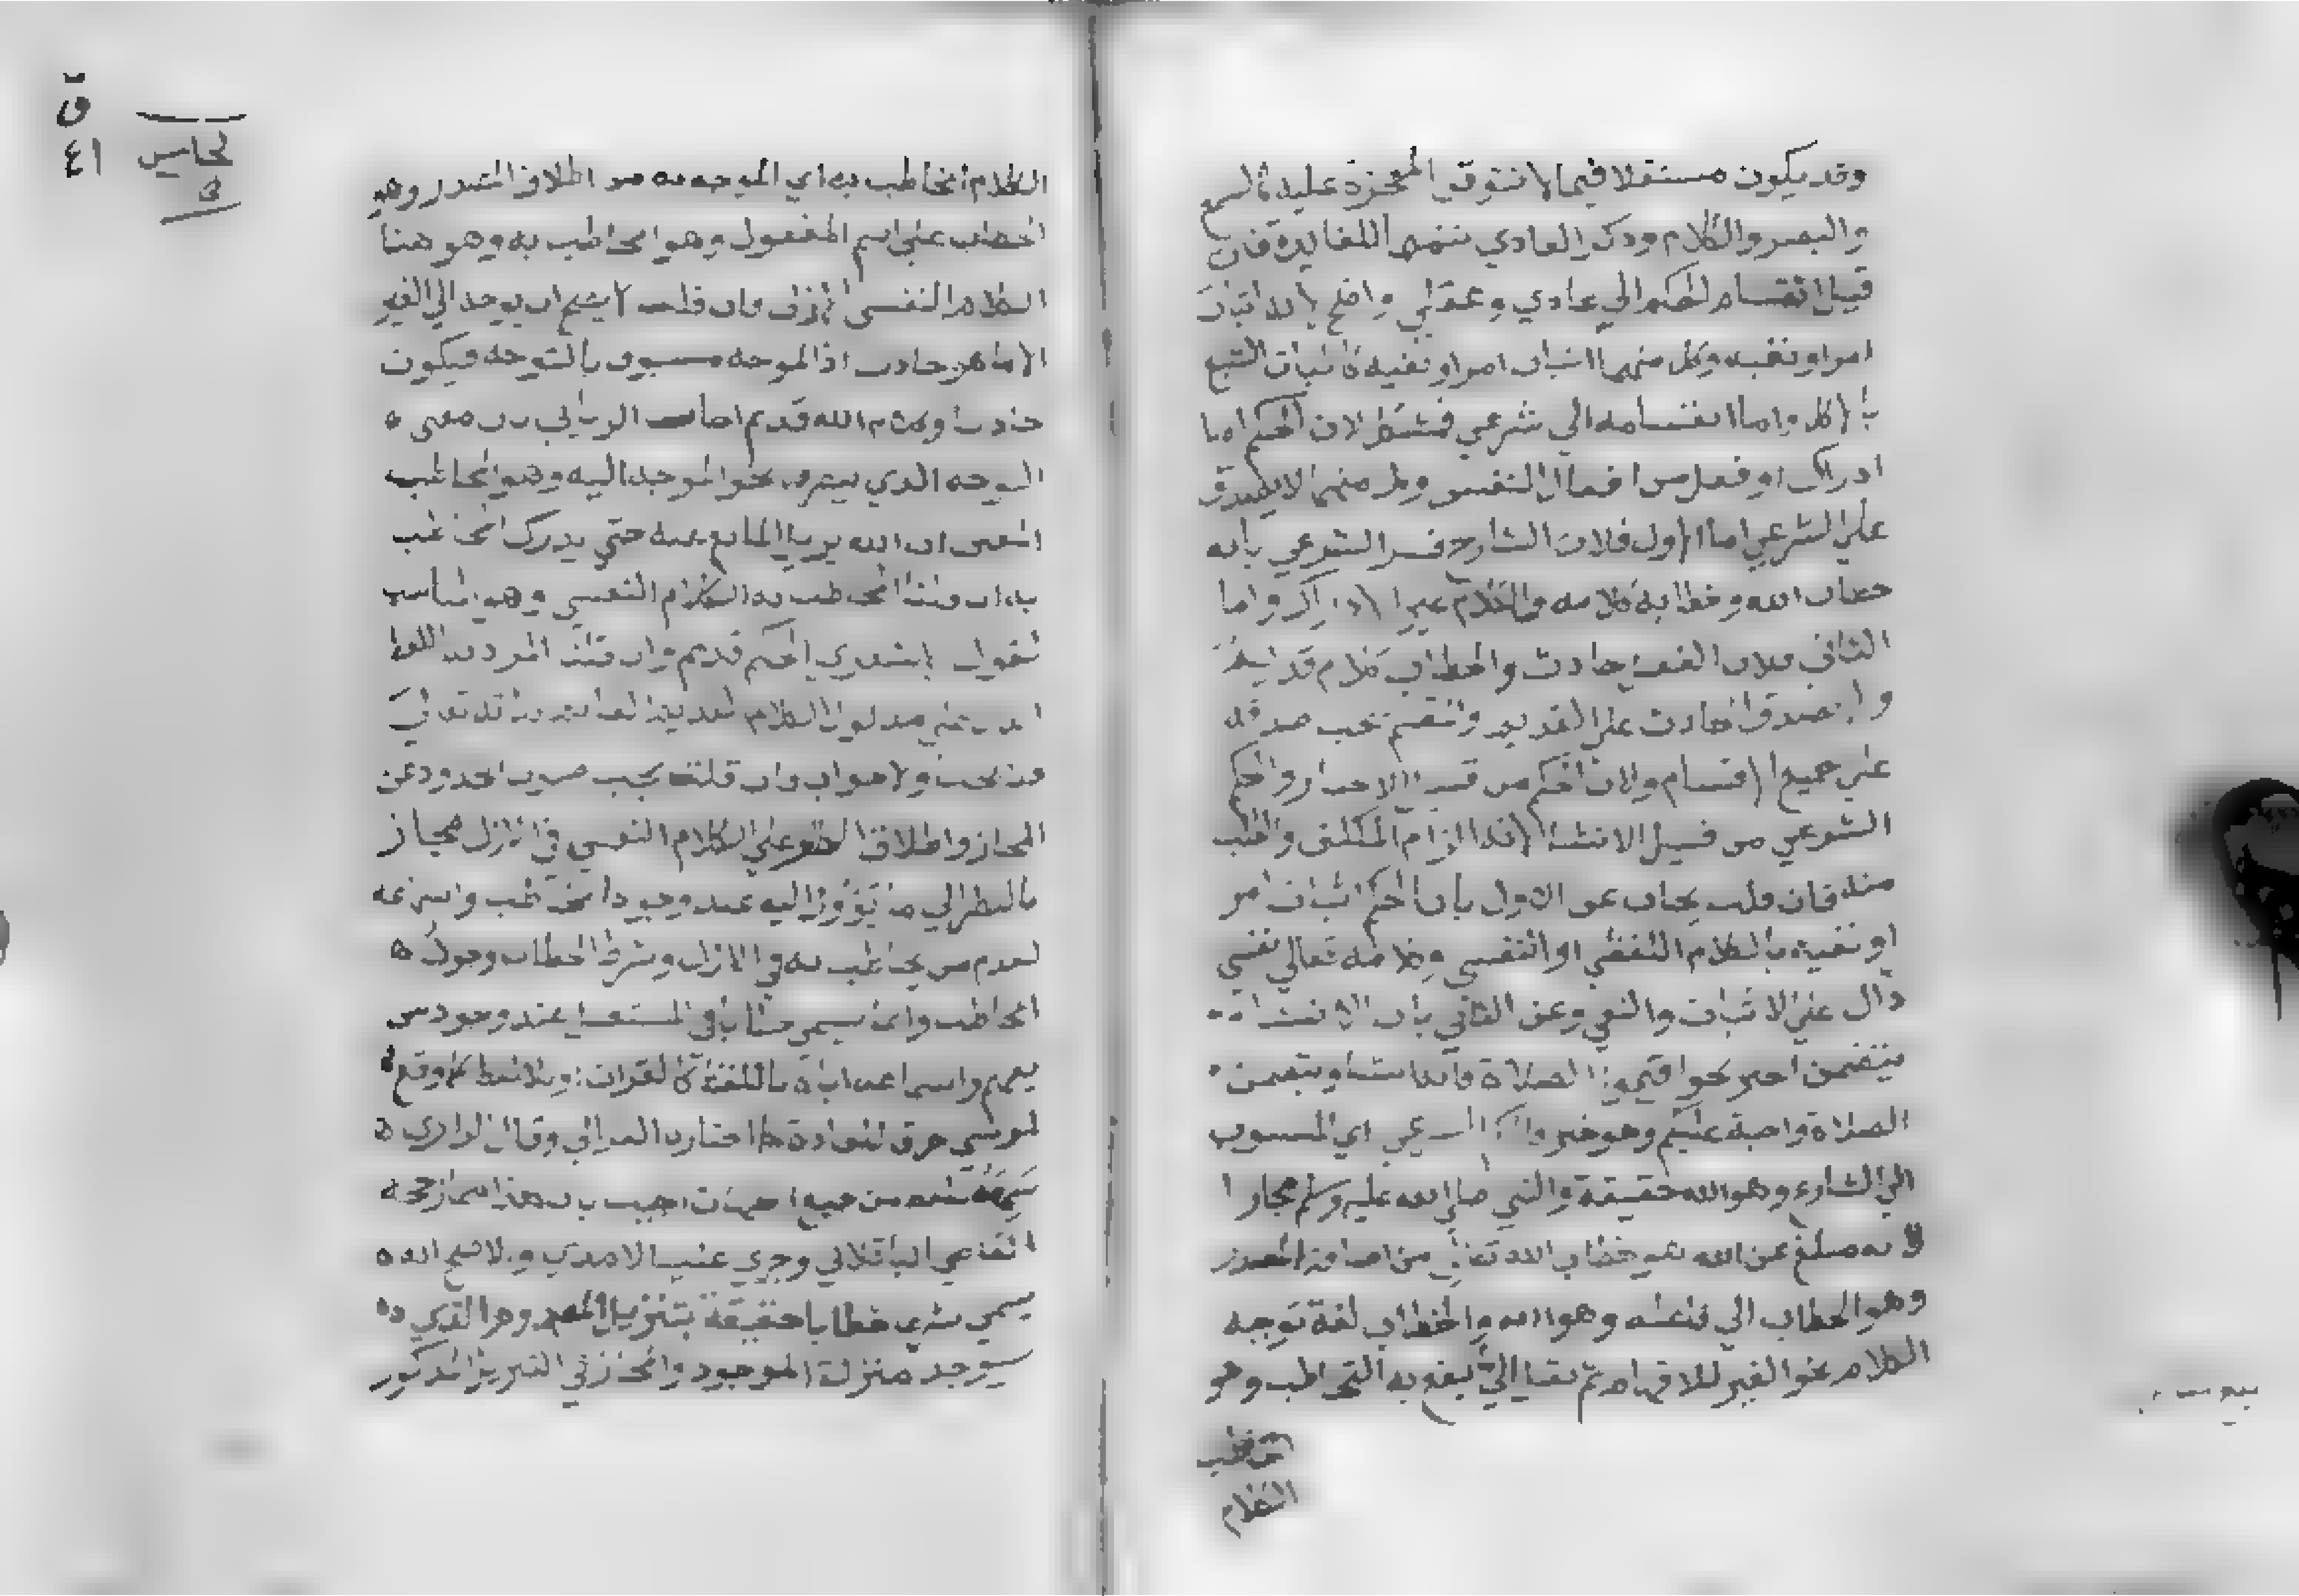 وقد يكون مستقلا فيما لا تتوقف المعجزة عليه كالسمع
والبصر والكلام وذكر العادي تتميما للفايدة فان
قيل انقسام الحكم الي عادي وعقلي واضح لانه اثبات
امر او نفيه وكل منهما اثبات امر او نفيه كاثبات الشبع
بالاكل واما انقسامه الي شرعي فمشكل لان الحكم اما
ادراك او فعل من افعال النفس وكل منهما لا يصدق
علي الشرعي اما الاول فلان الشارح فسر الشرعي بانه
خطاب الله وخطابه كلامه والكلام غير الادراك واما
الثاني فلان الفعل حادث والخطاب كلام قديم
ولا يصدق الحادث علي القديم والمقسم يجب صدقه
علي جميع الاقسام ولان الحكم من قبيل الاخبار والحكم
الشرعي من قبيل الانشا لانه الزام المكلف والطلب
منه فان قلت يجاب عن الاول بان الحكم اثبات امر
او نفيه بالكلام اللفظي او النفسي وكلامه تعالي نفسي
دال علي الاثبات والنفي وعن الثاني بان الانشا
يتضمن اخبر نحو اقيموا الصلاة فانه انشا ويتضمن
الصلاة واجبة عليكم وهو خبر والحكم الشرعي اي المنسوب
الي الشارع وهو الله حقيقة والنبي صلي الله عليه وسلم مجازا
لانه مبلغ عن الله هو خطاب الله تعالي من اضافة المصدر
وهو الخطاب الي فاعله وهو الله والخطاب لغة توجيه
الكلام نحو الغير للافهام ثم نقل الي ما يقع به التخاطب وهو
التخاطب
الكلام
ق
٤١
نحاسي
الكلام المخاطب به اي الموجه به من اطلاق المصدر وهو
الخطاب علي اسم المفعول وهو المخاطب به وهو هنا
الكلام النفسي الازلي فان قلت لا يصح ان يوجد الي الغير
الا ما هو حادث اذ الموجه مسبوق بالتوجه فيكون
حادثا وكلام الله قديم اجاب الزيات بان معني
التوجه الذي يصرف نحو الموجه اليه وهو المخاطب
المعني ان الله يزيل المانع عنه حتي يدرك المخاطب
به ان قلنا المخاطب به الكلام النفسي وهو المناسب
لقول الاشعري الحكم قديم وان قلنا المراد به اللفظ
الدال علي مدلول الكلام القديم
فلا بحث ولا جواب فان قلت يجب صون الحدود عن
المجاز واطلاق الخطاب علي الكلام النفسي في الازل مجاز
بالنظر الي ما يؤول اليه عند وجود المخاطب واسماعه
لعدم من يخاطب به في الازل وشرط الخطاب وجود
المخاطب وانما يسمي خطابا في المستقبل عند وجود من
يفهم واسماعه اياه باللفظ كالقران او بلا لفظ كما وقع
لموسي خرق للعادة كما اختاره الغزالي وقال الرازي
سمعه منه من جميع الجهات اجيب بان هذا مما رجحه
القاضي الباقلاني وجري عليه الامدي والاصح انه
يسمي في الازل خطابا حقيقة بتنزيل المعدوم الذي
سيوجد منزلة الموجود والمجاز في التنزيل المذكور